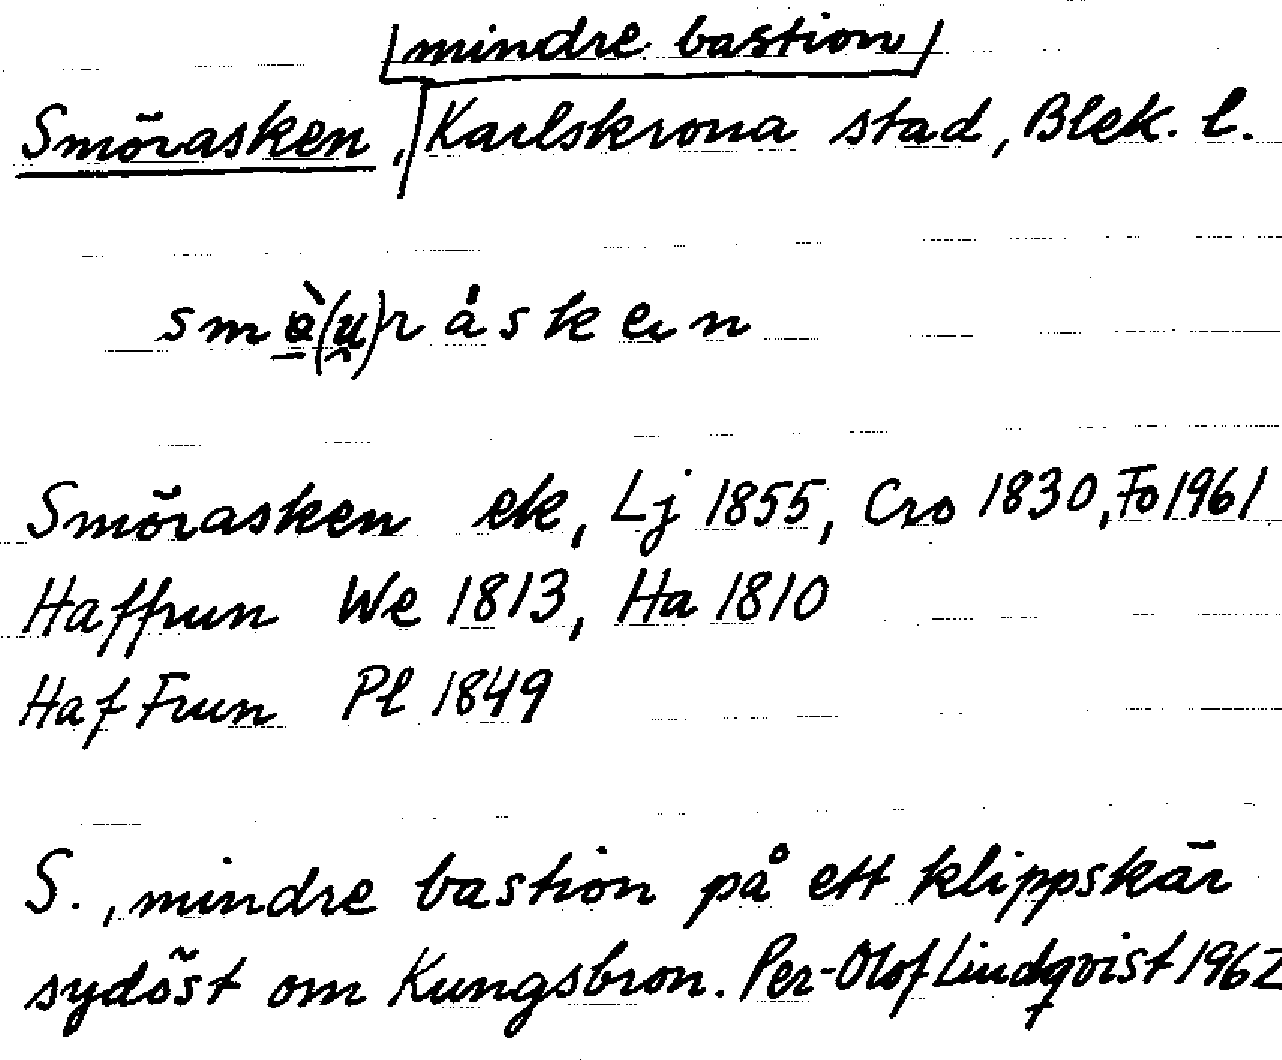 mindre bastion
Smörasken, Karlskrona stad, Blek. l.
Smörasken ek, Lj 1855, Cro 1830, Fo 1961
Haffrun We 1813, Ha 1810
Haf Frun Pl 1849
S., mindre bastion på ett klippskär
sydöst om Kungsbron. Per-Olof Lindqvist 1962